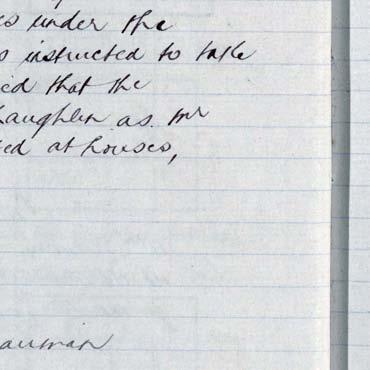 es under the
s instructed to take
ied that the
Laughlin as Mr
ted at houses,
airman